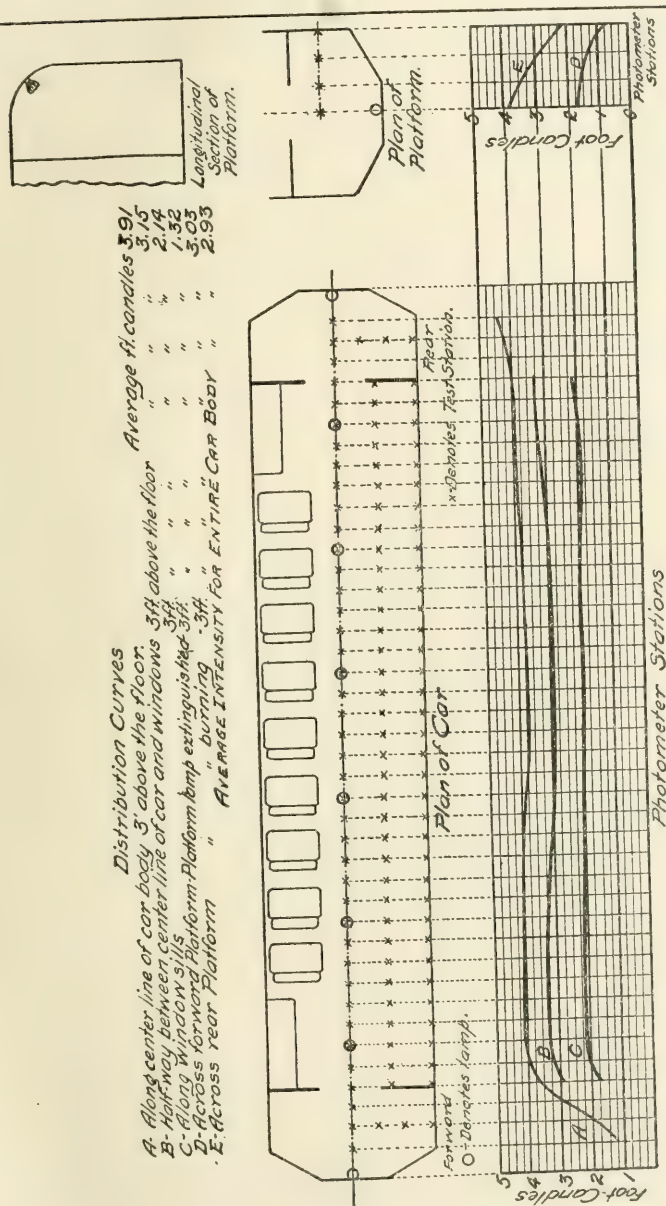 Distribution Curves
A- Along center line of car body 3' above the floor. Average ft. candles 3.91
B- Half-way between center line of car and windows 3ft. above the floor " " " 3.15
C- Along Window sills 3ft. " " " " " " 2.14
D- Across forward Platform-Platform lamp extinguished 3ft. " " " " " " 1.32
E- Across rear Platform " " burning - 3ft. " " " " " " 3.03
AVERAGE INTENSITY FOR ENTIRE CAR BODY " " 2.93
Longitudinal
Section of
Platform.
Plan of
Platform.
Forward
O-Denotes lamp.
Plan of Car
Rear
x-Denotes Test Station.
Foot-Candles
5
4
3
2
1
A
B
C
Photometer Stations
Foot Candles
5
4
3
2
1
0
E
D
Photometer
Stations